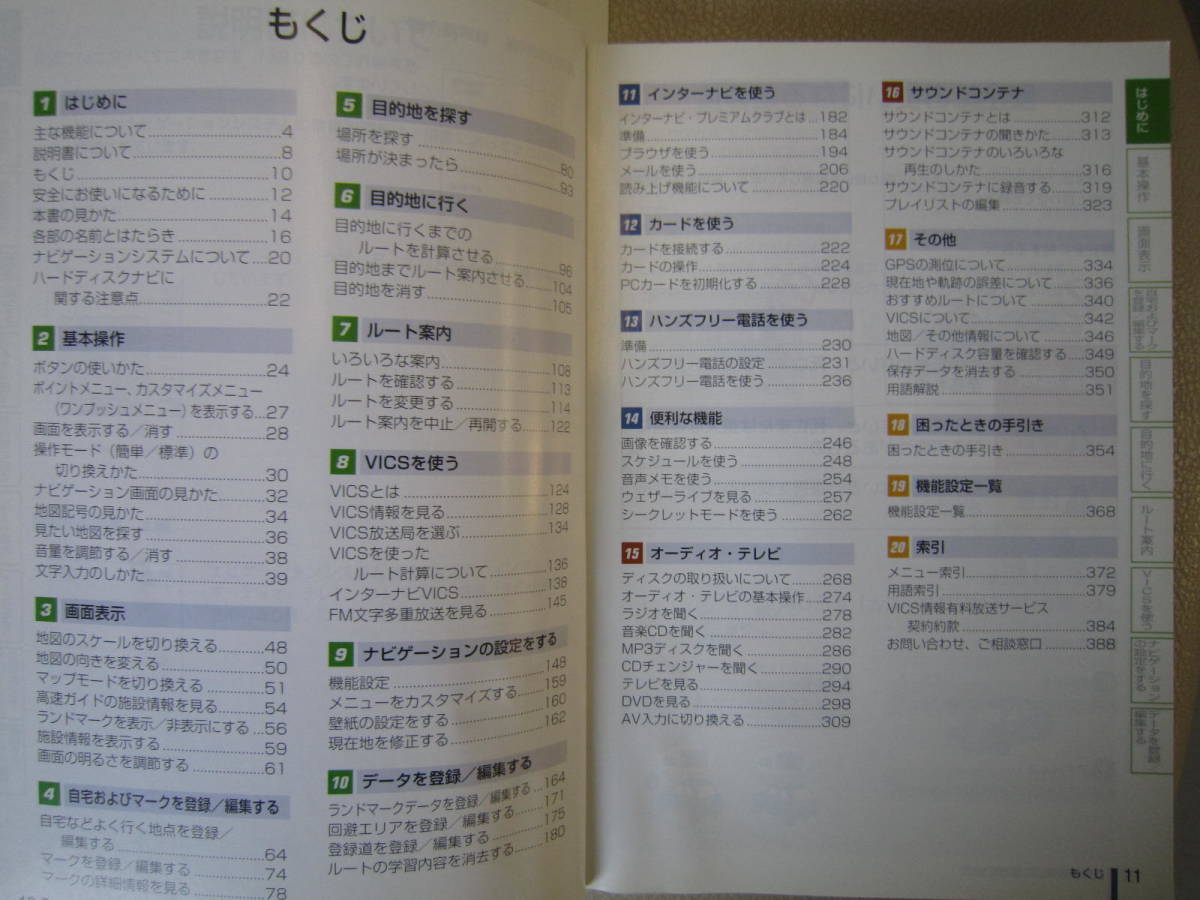 もくじ
1 はじめに
主な機能について……4
説明書について……8
もくじ……10
安全にお使いになるために……12
本書の見かた……14
各部の名前とはたらき……16
ナビゲーションシステムについて……20
ハードディスクナビに
関する注意点……22
2 基本操作
ボタンの使いかた……24
ポイントメニュー、カスタマイズメニュー
（ワンプッシュメニュー）を表示する……27
画面を表示する／消す……28
操作モード（簡単／標準）の
切り換えかた……30
ナビゲーション画面の見かた……32
地図記号の見かた……34
見たい地図を探す……36
音量を調節する／消す……38
文字入力のしかた……39
3 画面表示
地図のスケールを切り換える……48
地図の向きを変える……50
マップモードを切り換える……51
高速ガイドの施設情報を見る……54
ランドマークを表示／非表示にする……56
施設情報を表示する……59
画面の明るさを調節する……61
4 自宅およびマークを登録／編集する
自宅などよく行く地点を登録／
編集する……64
マークを登録／編集する……74
マークの詳細情報を見る……78
5 目的地を探す
場所を探す……80
場所が決まったら……93
6 目的地に行く
目的地に行くまでの
ルートを計算させる……96
目的地までルート案内させる……104
目的地を消す……105
7 ルート案内
いろいろな案内……108
ルートを確認する……113
ルートを変更する……114
ルート案内を中止／再開する……122
8 VICSを使う
VICSとは……124
VICS情報を見る……128
VICS放送局を選ぶ……134
VICSを使った
ルート計算について……136
インターナビVICS……138
FM文字多重放送を見る……145
9 ナビゲーションの設定をする
機能設定……148
メニューをカスタマイズする……159
壁紙の設定をする……160
現在地を修正する……162
10 データを登録／編集する
ランドマークデータを登録／編集する……164
回避エリアを登録／編集する……171
登録道を登録／編集する……175
ルートの学習内容を消去する……180
11 インターナビを使う
インターナビ・プレミアムクラブとは……182
準備……184
ブラウザを使う……194
メールを使う……206
読み上げ機能について……220
12 カードを使う
カードを接続する……222
カードの操作……224
PCカードを初期化する……228
13 ハンズフリー電話を使う
準備……230
ハンズフリー電話の設定……231
ハンズフリー電話を使う……236
14 便利な機能
画像を確認する……246
スケジュールを使う……248
音声メモを使う……254
ウェザーライブを見る……257
シークレットモードを使う……262
15 オーディオ・テレビ
ディスクの取り扱いについて……268
オーディオ・テレビの基本操作……274
ラジオを聞く……278
音楽CDを聞く……282
MP3ディスクを聞く……286
CDチェンジャーを聞く……290
テレビを見る……294
DVDを見る……298
AV入力に切り換える……309
16 サウンドコンテナ
サウンドコンテナとは……312
サウンドコンテナの聞きかた……313
サウンドコンテナのいろいろな
再生のしかた……316
サウンドコンテナに録音する……319
プレイリストの編集……323
17 その他
GPSの測位について……334
現在地や軌跡の誤差について……336
おすすめルートについて……340
VICSについて……342
地図／その他情報について……346
ハードディスク容量を確認する……349
保存データを消去する……350
用語解説……351
18 困ったときの手引き
困ったときの手引き……354
19 機能設定一覧
機能設定一覧……368
20 索引
メニュー索引……372
用語索引……379
VICS情報有料放送サービス
契約約款……384
お問い合わせ、ご相談窓口……388
はじめに
基本操作
画面表示
自宅およびマーク
を登録／編集する
目的地を探す
目的地に行く
ルート案内
VICSを使う
ナビゲーション
の設定をする
データを登録／
編集する
もくじ 11